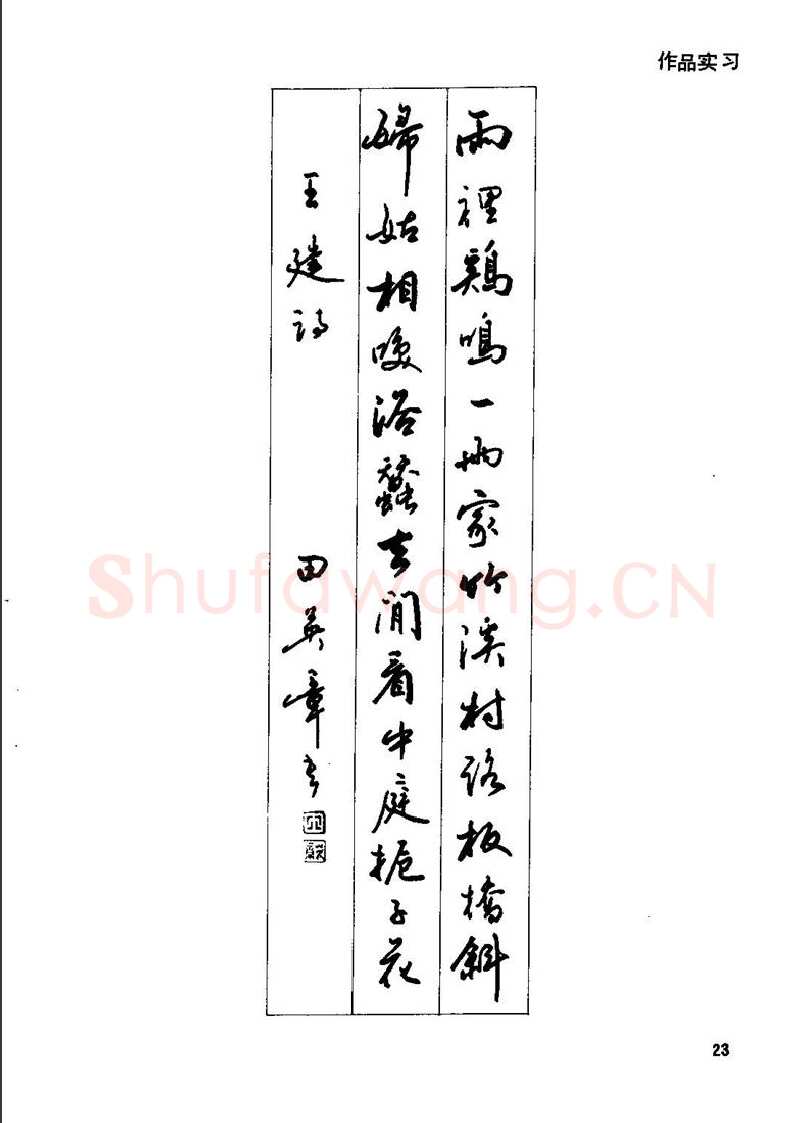 作品实习
雨裡鷄鳴一兩家竹溪村路板橋斜
婦姑相喚浴蠶去閒看中庭栀子花
王建诗
田英章书
Shufawang.CN
23